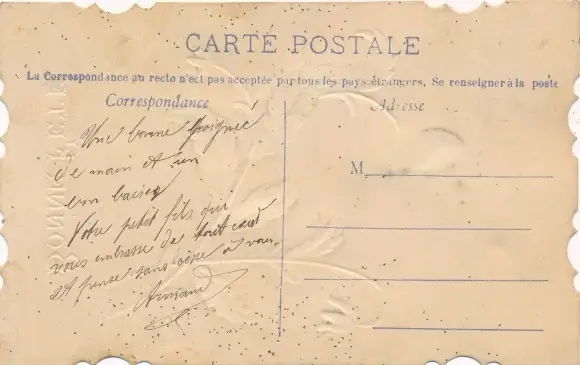 CARTE POSTALE
La Correspondance au recto n'est pas acceptée par tous les pays étrangers. Se renseigner à la poste
Correspondance
Adresse
Une bonne Poignée
de main et un
bon baiser
Votre petit fils qui
vous embrasse de tout cœur
et pense sans cesse à vous.
Armand
M